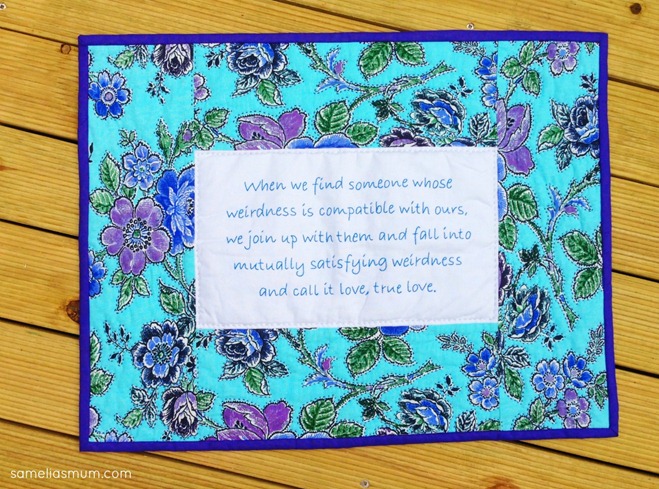 When we find someone whose
weirdness is compatible with ours,
we join up with them and fall into
mutually satisfying weirdness
and call it love, true love.
sameliasmum.com